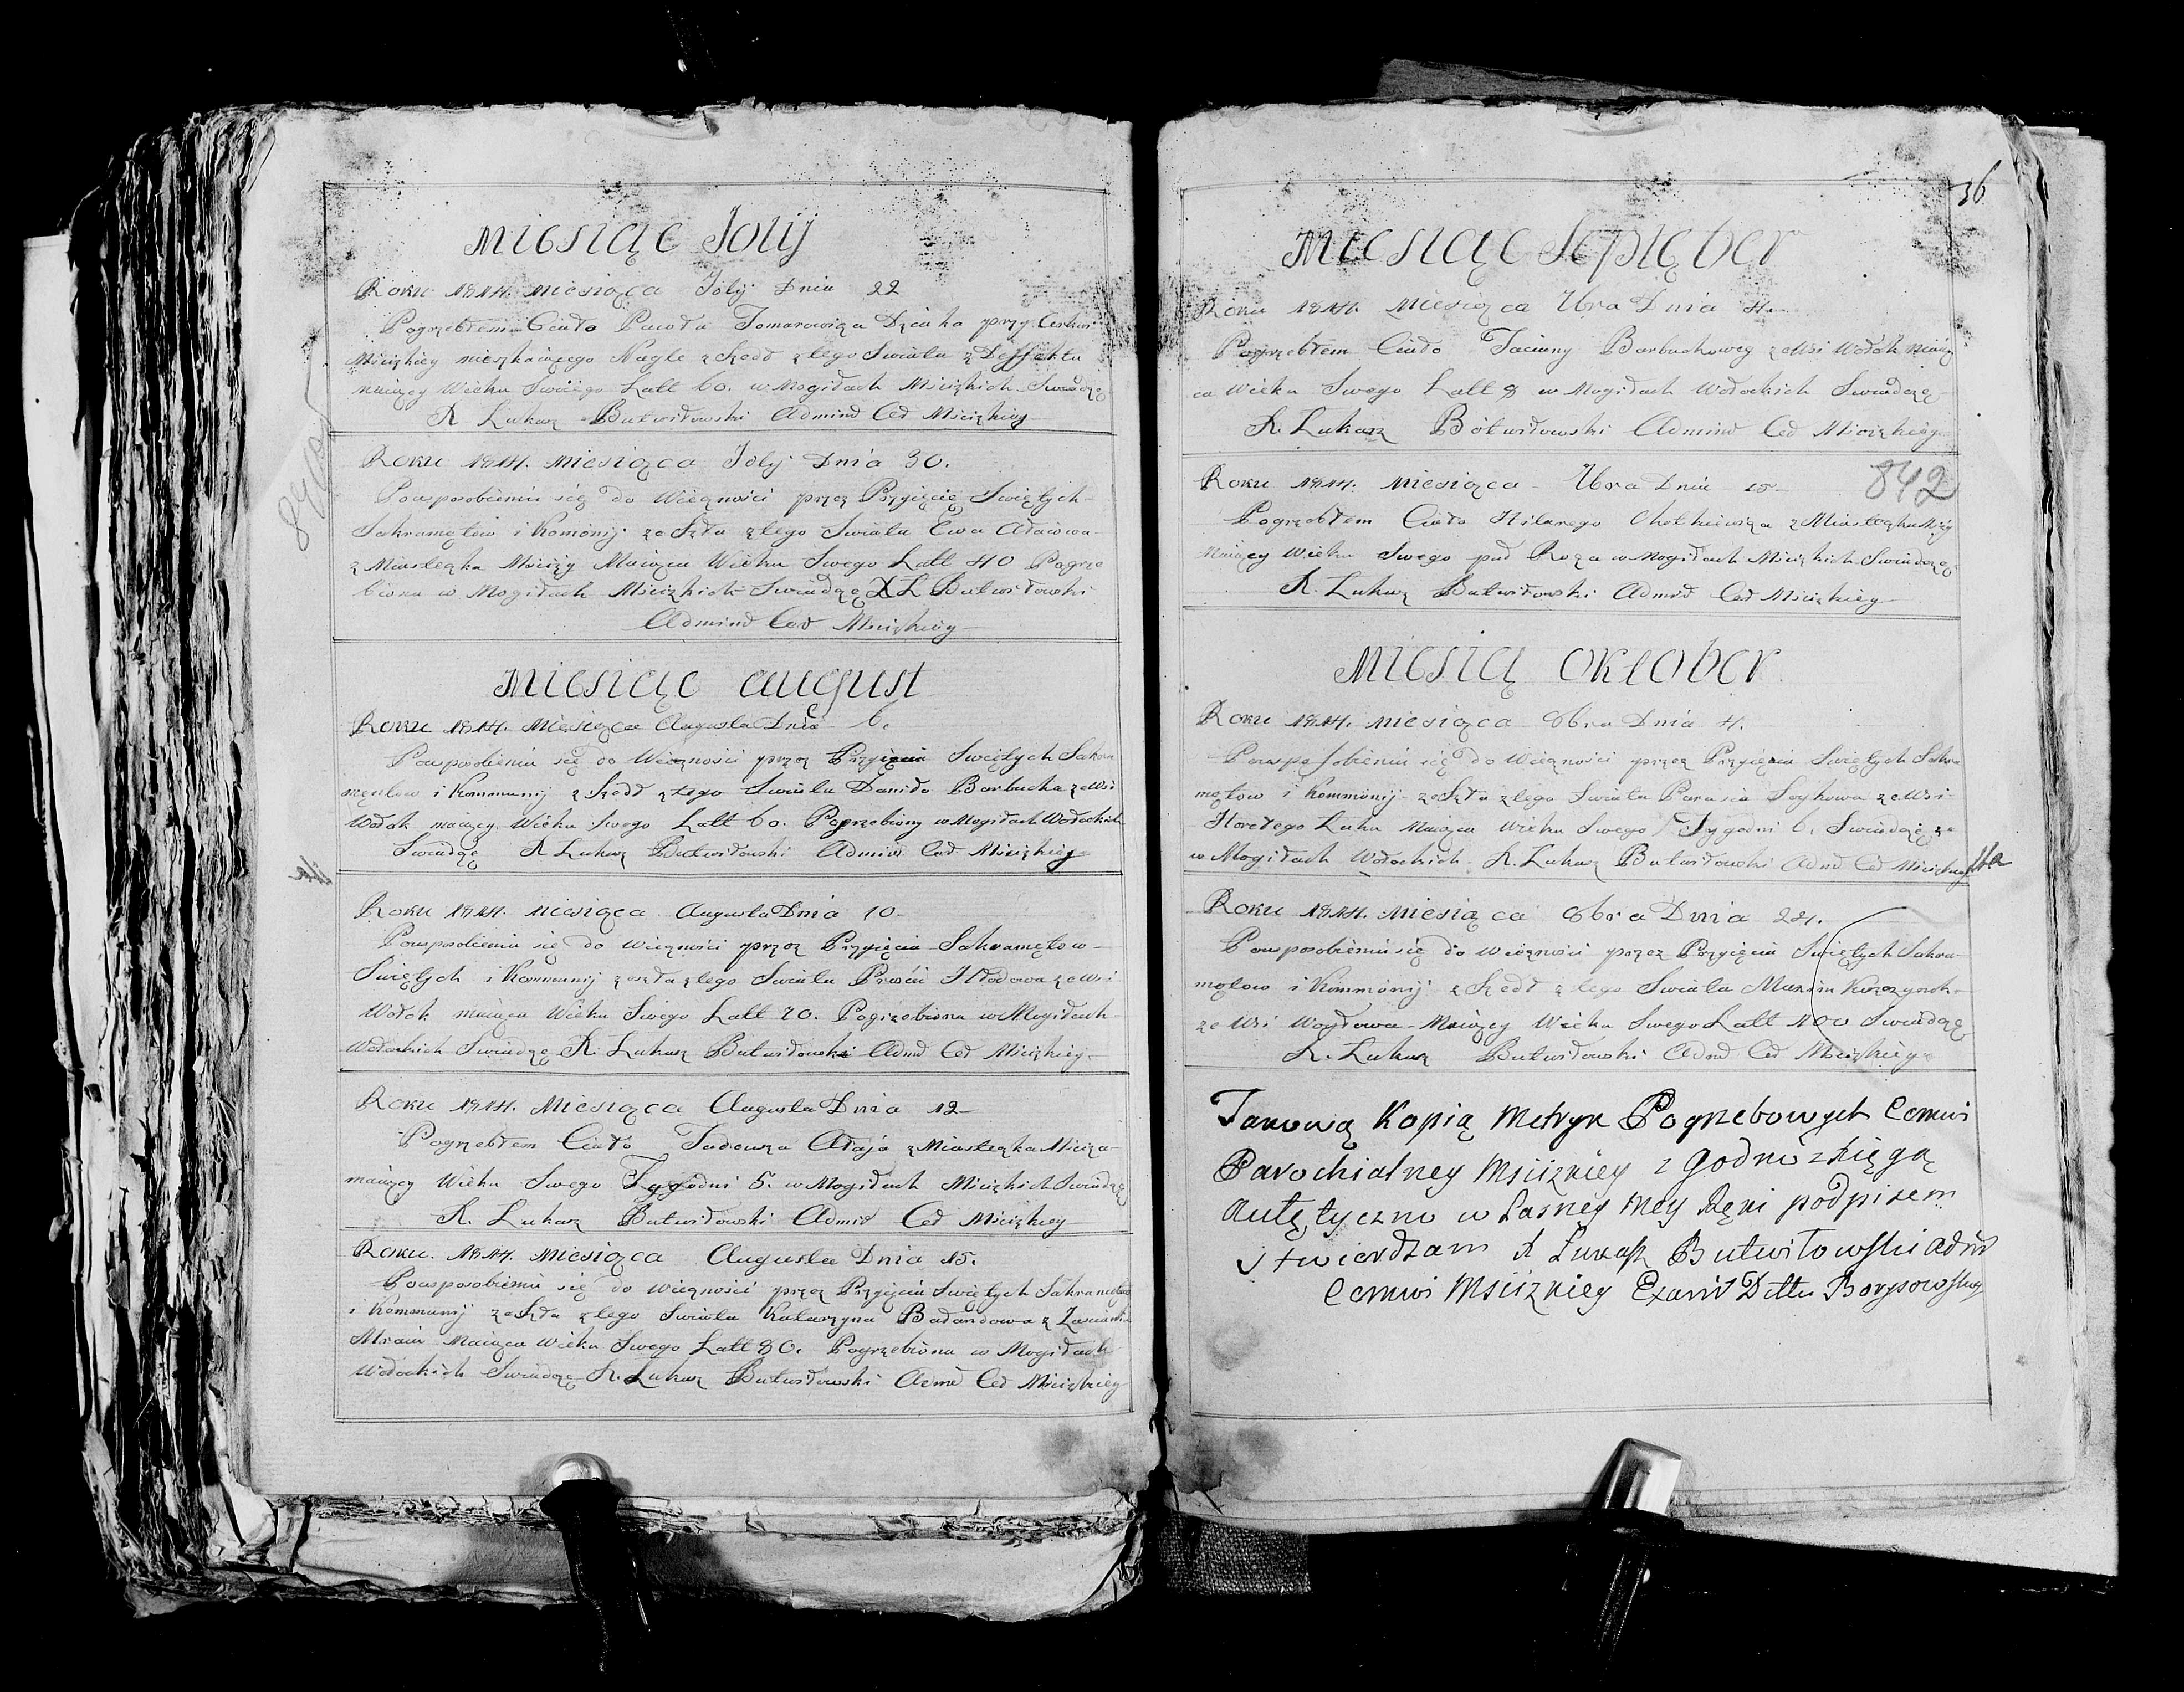 Miesiąc Jolij
Roku 1814. Miesiąca Jolij Dnia 22
Pogrzebłem Ciało Pawła Tomarowicza Dziaka przy Cerkwi
Mścizkiey mieszkaiącego Nagle zszedł z tego Swiata z Deffektu
maiący Wieku Swoiego Latt 60. w Mogiłach Mścizkich Swiadczę
X Łukasz Butwiłowski Admind Ced Mścizkiey
Roku 1814. Miesiąca Jolij Dnia 30.
Po usposobieniu się do Wieczności przez Przyięcie Swiętych
Sakramętow i Komonij zeszła z tego Swiata Ewa Ałaiowa
z Miasteczka Mściży Maiąca Wieku Swego Latt 40 Pogrze
biona w Mogiłach Mścizkich Swiadczę X Ł Butwiłowski
Admind Ced Mścizkiey
Miesiąc august
Roku 1814. Miesiąca Augusta Dnia 6.
Po usposobieniu się do Wieczności przez Przyięcia Swiętych Sakra
mętow i Kommunij zszedł z tego Swiata Daniło Barbucha ze Wsi
Wołok maiący Wieku Swego Latt 60. Pogrzebiony w Mogiłach Wołockich
Swiadczę X Łukasz Butwiłowski Admin Ced Mścizkiey
Roku 1814. Miesiąca Augusta Dnia 10
Po usposobieniu się do Wieczności przez Przyięcia Sakramętow
Swiętych i Kommunij zeszła z tego Swiata ze Wsi
Wołok maiąca Wieku Swego Latt 70. Pogrzebiona w Mogiłach
Wołockich Swiadczę X. Łukasz Butwiłowski Admd Ced Mścizkiey
Roku 1814. Miesiąca Augusta Dnia 12
Pogrzebłem Ciało Tadeusza Ałaja z Miasteczka Mściża
maiący Wieku Swego Tygodni 5. w Mogiłach Mścizkich Swiadczę
X. Łukasz Butwiłowski Admid Ced Mścizkiey
Roku. 1814. Miesiąca Augusta Dnia 15.
Po usposobieniu się do Wieczności przez Przyięcia Swiętych Sakramętow
i Kommunij zeszła z tego Swiata Katarzyna Badandowa z
Maiąca Wieku Swego Latt 80. Pogrzebiona w Mogiłach
Wołockich Swiadczę X. Łukasz Butwiłowski Admd Ced Mścizkiey
36
Miesiąc Septęber
Roku 1814. Miesiąca 7bra Dnia 4
Pogrzebłem Ciało Taciany Barbuchowey ze Wsi Wołok Maią
ca Wieku Swego Latt 8 w Mogiłach Wołockich Swiadczę
X. Łukasz Bótwiłowski Admind Ced Mścizkiey
842
Roku 1814. Miesiąca 7bra Dnia 15
Pogrzebłem Ciało Hilarego Chotkiewicza z Miasteczka Mściży
Maiący Wieku Swego puł Roza w Mogiłach Mścizkich Swiadczę
X. Łukasz Butwiłowski Admid Ced Mścizkiey
Miesią October
Roku 1814. Miesiąca 8bra Dnia 4.
Po uspossobieniu się do Wieczności przez Przyięcia Swiętych Sakra
mętow i Kommónij zeszła z tego Swiata Parasia Soykowa ze Wsi
Horełego Luhu Maiąca Wieku Swego Tygodni 6. Swiadczę że
w Mogiłach Wołockich X. Łukasz Butwiłowski Admd Ced Mścizkiey
Roku 1814. Miesiąca 8bra Dnia 24.
Po usposobieniu się do Wieczności przez Przyięcia Swiętych Sakra
mętow i Kommónij zszedł z tego Swiata Maxim
ze Wsi Maiący Wieku Swego Latt 100 Swiadczę
X. Łukasz Butwiłowski Admd Ced Mścizkiey
Takową Kopią Metryk Pogrzebowych Cerkwi
Parochialney Mścizkiey z Godno z Kięgą
Autętyczno własney mey Ręki podpisem
stwierdzam X Łukasz Butwiłowski Adm
Cerkwi Mścizkiey Exam Dttu Borysowskiey